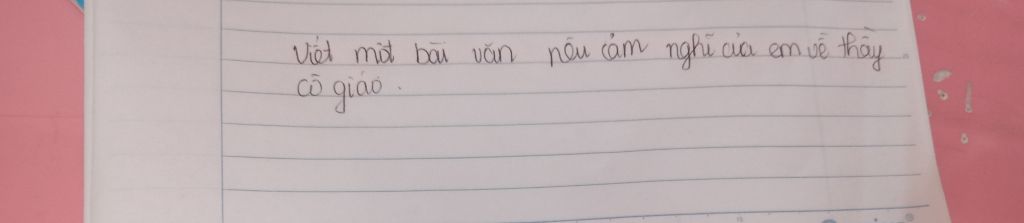 Viết một bài văn nêu cảm nghĩ của em về thầy
cô giáo.